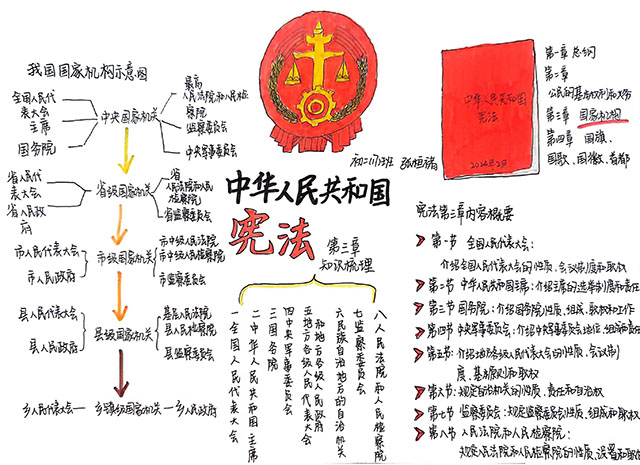 我国国家机构示意图
全国人民代
表大会
主席
国务院
中央国家机关
最高
人民法院和人民检
察院
监察委员会
中央军事委员会
省人民代
表大会
省人民政
府
省级国家机关
省
人民法院和人民
检察院
省监察委员会
市人民代表大会
市人民政府
市级国家机关
市中级人民法院
市中级人民检察院
市监察委员会
县人民代表大会
县人民政府
县级国家机关
基层人民法院
县人民检察院
县监察委员会
乡人民代表大会
乡镇级国家机关
乡人民政府
中华人民共和国
宪法
第三章
知识梳理
一全国人民代表大会
二中华人民共和国主席
三国务院
四中央军事委员会
五地方各级人民代表大会
和地方各级人民政府
六民族自治地方的自治机关
七监察委员会
八人民法院和人民检察院
中华人民共和国
宪法
第一章 总纲
第二章
公民的基本权利和义务
第三章 国家机构
第四章 国旗、
国歌、国徽、首都
宪法第三章内容概要
第一节 全国人民代表大会：
介绍全国人民代表大会的性质、会议制度和职权
第二节 中华人民共和国主席：介绍主席的选举制度和责任
第三节 国务院：介绍国务院性质、组成、职权和工作
第四节 中央军事委员会：介绍中央军事委员会地位、组成和责任
第五节：介绍地方各级人民代表大会的性质、会议制
度、基本原则和职权
第六节：规定自治机关的性质、责任和自治权
第七节 监察委员会：规定监察委员会性质、组成和职权
第八节 人民法院和人民检察院：
规定人民法院和人民检察院的性质、设置和职权